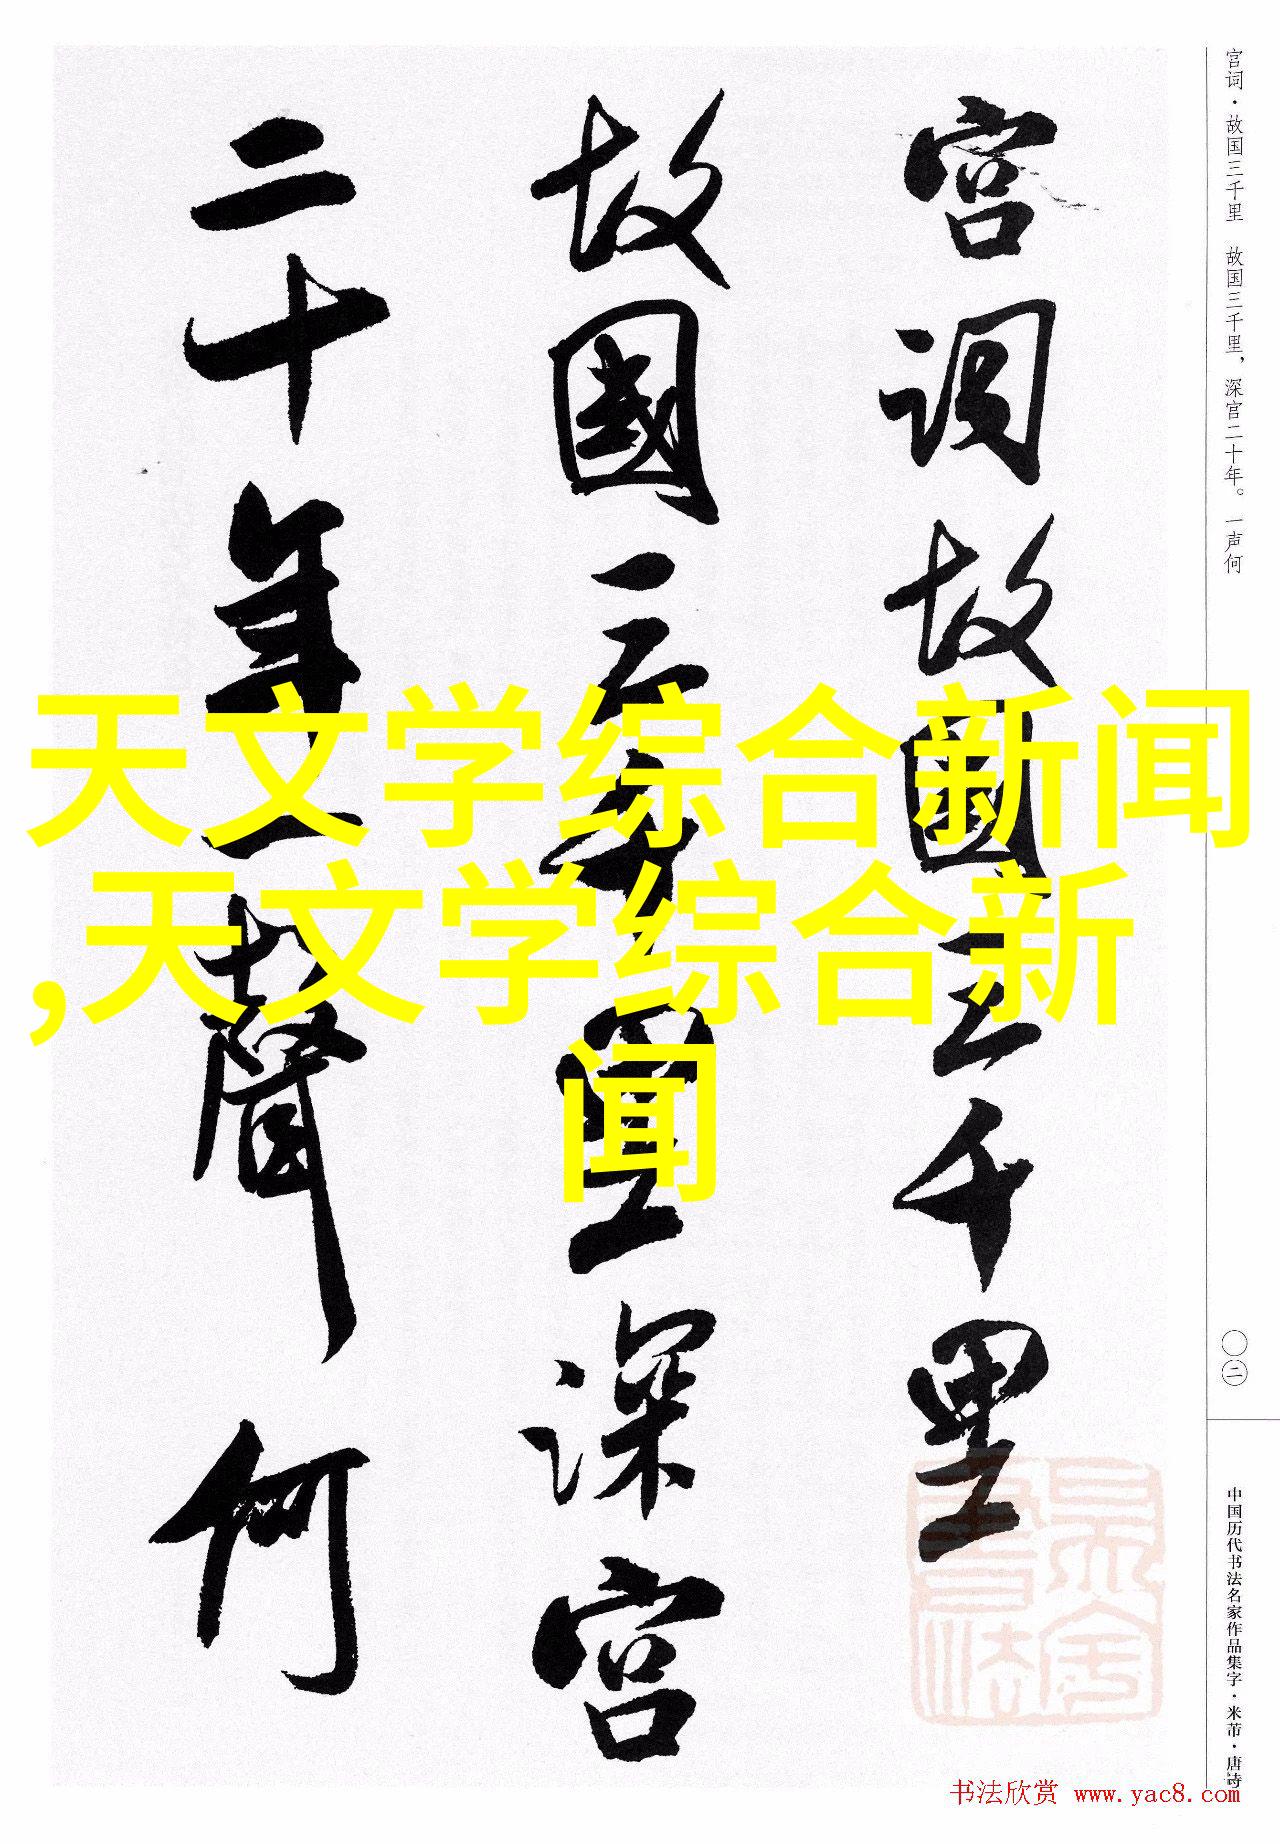 宫词·故国三千里 故国三千里，深宫二十年。一声何
宫词故国三千里
故國三千里深宫
二十年一聲何
天文学综合新闻
,天文学综合新
闻
〇二
中国历代书法名家作品集字·米芾·唐诗
书法欣赏 www.yac8.com